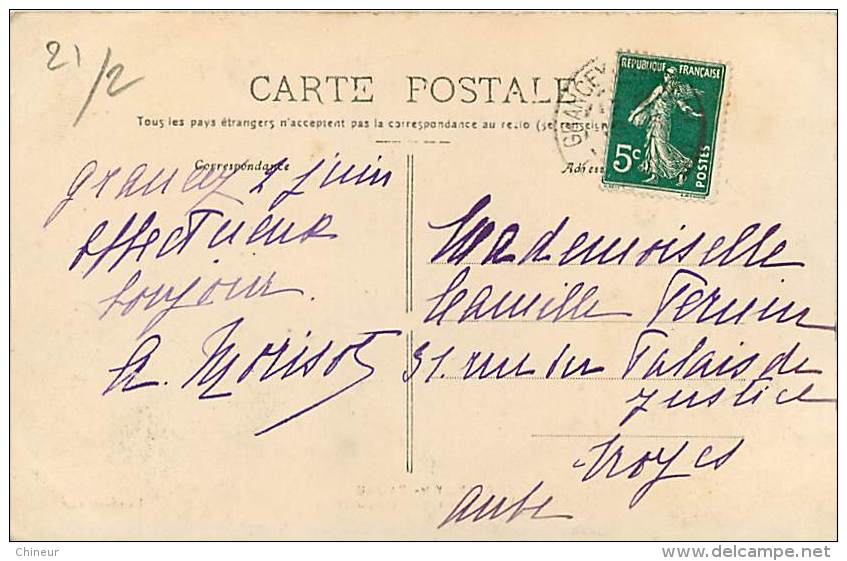 21/2
CARTE POSTALE
Tous les pays étrangers n'acceptent pas la correspondance au recto (se renseign
Correspondance
Adresse
GRANCEY
REPUBLIQUE FRANÇAISE
5c
POSTES
Grancey 2 juin
affectueux
bonjour
A. Morisot
Mademoiselle
Camille
31. rue du Palais de
Justice
Troyes
Aube
Chineur
delcampe.net